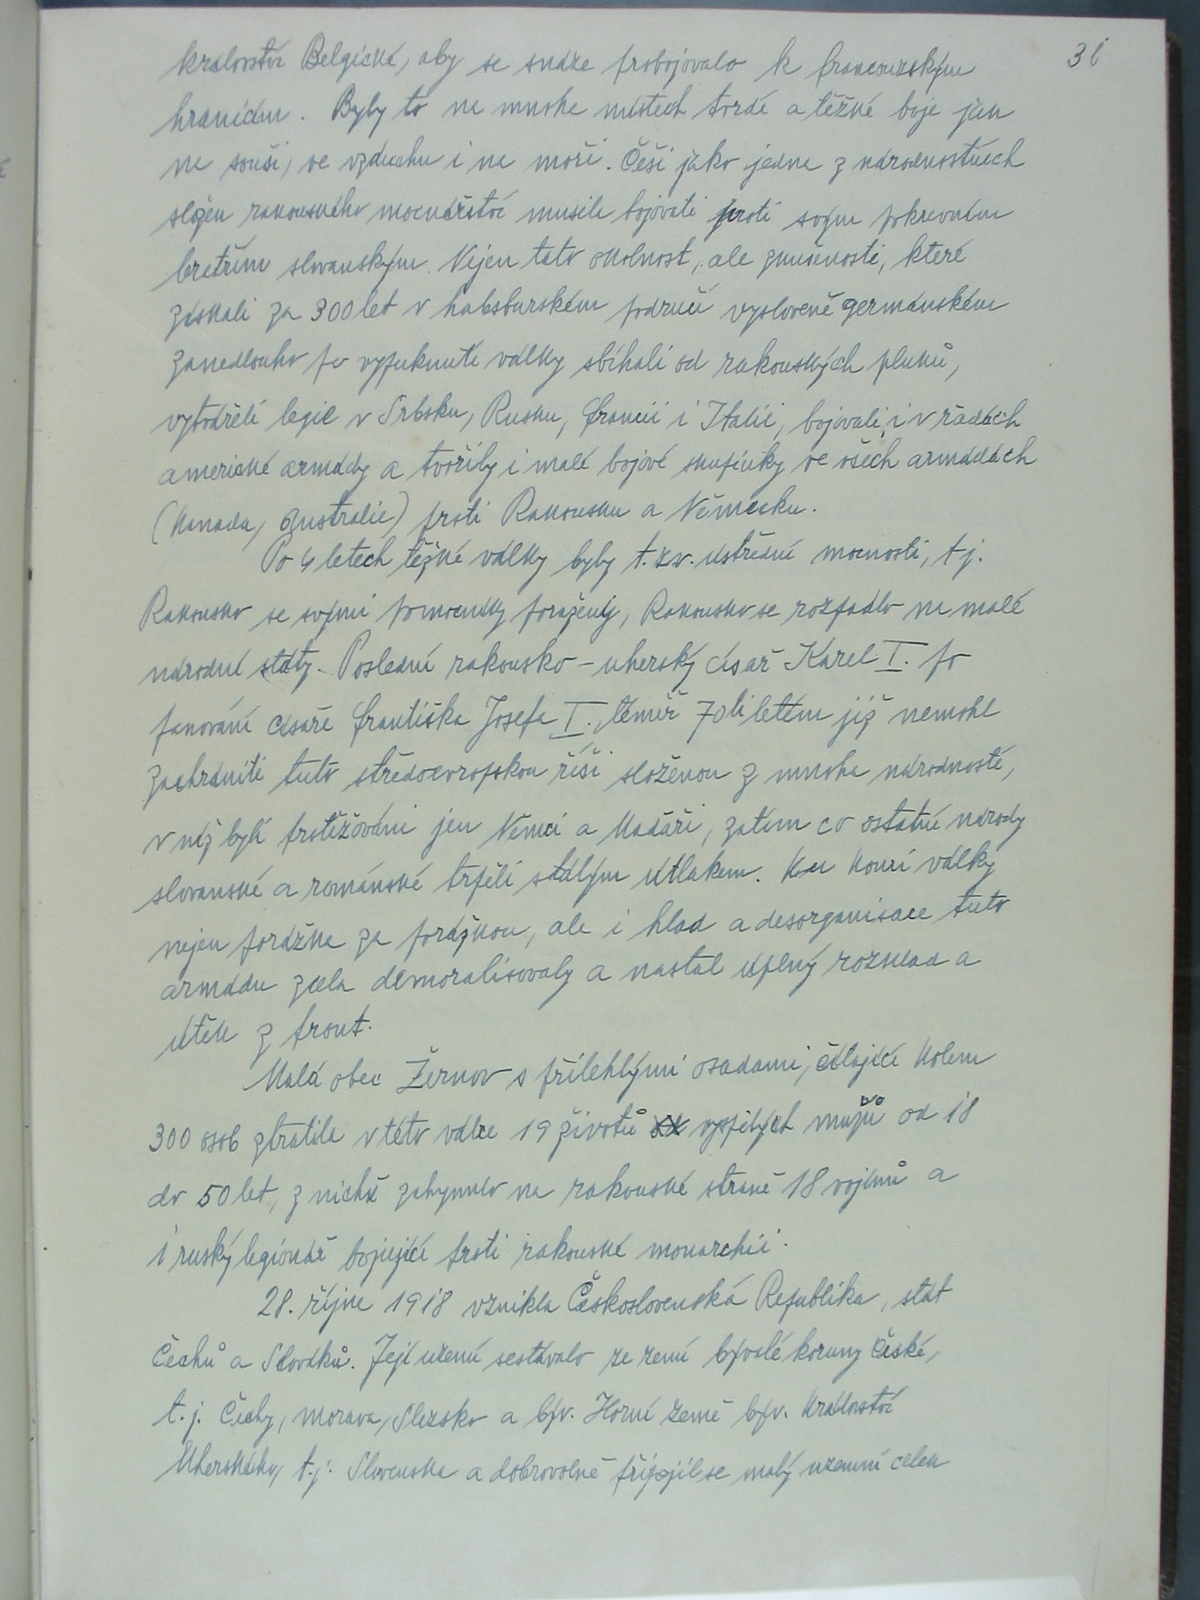 31
království Belgické, aby se snáze probojovalo k francouzským
hranicím. Byly to na mnoha místech tvrdé a těžké boje jak
na souši, ve vzduchu i na moři. Češi jako jedna z národnostních
složen rakouského mocnářství musila bojovati proti svým pokrevním
bratřím slovanským. Nejen tato okolnost, ale zkušenosti, které
získali za 300 let v habsburském područí vysloveně germánském
zanedlouho po vypuknutí války sbíhali od rakouských pluků,
vytvářeli legie v Srbsku, Rusku, Francii i Italii, bojovali i v řadách
americké armády a tvořily i malé bojové skupinky ve všech armádách
(Kanada, Australie) proti Rakousku a Německu.
Po 4 letech těžké války byly t. zv. ústřední mocnosti, tj.
Rakousko se svými pomocníky poraženy, Rakousko se rozpadlo na malé
národní státy. Poslední rakousko-uherský císař Karel I. po
panování císaře Františka Josefa I. téměř 70ti letém již nemohl
zachrániti tuto středoevropskou říši složenou z mnoha národností,
v níž byli protěžováni jen Němci a Maďaři, zatím co ostatní národy
slovanské a románské trpěli stálým útlakem. Ku konci války
nejen porážka za porážkou, ale i hlad a desorganisace tuto
armádu zcela demoralisovaly a nastal úplný rozklad a
útěk z front.
Malá obec Žernov s přilehlými osadami, čítající kolem
300 osob ztratila v této válce 19 životů vyspělých mužů od 18
do 50 let, z nichž zahynulo na rakouské straně 18 vojínů a
1 ruský legionář bojující proti rakouské monarchii.
28. října 1918 vznikla Československá Republika, stát
Čechů a Slováků. Její území sestávalo ze zemí bývalé koruny České,
t. j. Čechy, Morava, Slezsko a býv. Horní země býv. Království
Uherského, t. j. Slovenska a dobrovolně připojil se malý uzemní celek